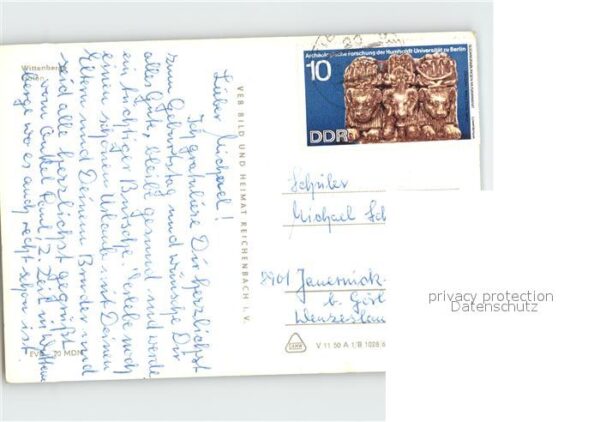 Wittenberge
Lieber Michael!
Ich gratuliere Dir herzlichst
zum Geburtstag und wünsche Dir
alles Gute, bleibe gesund und werde
ein tüchtiger Bursche. Verlebe noch
einen schönen Urlaub mit Deinen
Eltern und Deinem Bruder und
seid alle herzlichst gegrüßt
vom Onkel Paul, z. Zeit in Witten
berge wo es auch recht schön ist.
EVP 20 MDN
VEB BILD UND HEIMAT REICHENBACH I. V.
Archäologische Forschung der Humboldt-Universität zu Berlin
10
DDR
Schüler
Michael Sch
8901 Jauernick-
b. Görl
Wenzeslau
V 11 50 A 1/B 1028 6
privacy protection
Datenschutz